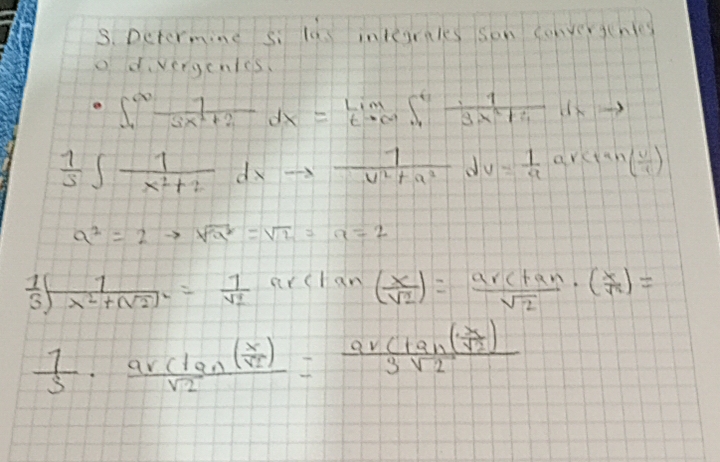 3. Determine si las integrales son convergentes
o divergentes.
• ∫₁^∞ 1/(3x²+2) dx = Lim t→∞ ∫₁^t 1/(3x²+2) dx →
1/3 ∫ 1/(x²+2) dx → 1/(u²+a²) du = 1/a arctan(u/a)
a² = 2 → √a² = √2 = a = 2
1/3 ∫ 1/(x²+(√2)²) = 1/√2 arctan (x/√2) = arctan/√2 · (x/√2) =
1/3 · arctan(x/√2)/√2 = arctan(x/√2)/3√2